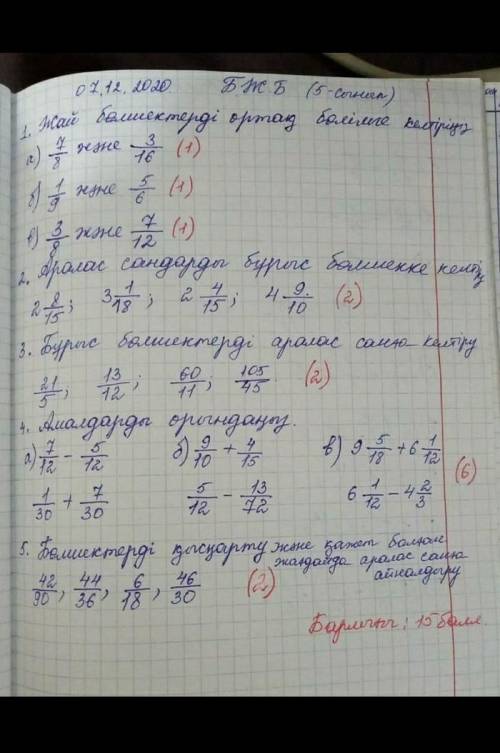 07.12.2020 БЖБ (5-сынып)
1. Жай бөлшектерді ортақ бөлімге келтіріңіз
а) 7/8 және 3/16 (1)
б) 1/9 және 5/6 (1)
в) 3/8 және 7/12 (1)
2. Аралас сандарды бұрыс бөлшекке келтір
2 8/15; 3 1/18; 2 4/15; 4 9/10 (2)
3. Бұрыс бөлшектерді аралас санға келтіру
21/5; 13/12; 60/11; 105/45. (2)
4. Амалдарды орындаңыз.
а) 7/12 - 5/12 б) 9/10 + 4/15 в) 9 5/18 + 6 1/12
1/30 + 7/30 5/12 - 13/72 6 1/12 - 4 2/3 (6)
5. Бөлшектерді қысқарту және қажет болған
жағдайда аралас санға
айналдыру
42/90, 44/36, 6/18, 46/30 (2)
Барлығы: 15 балл.